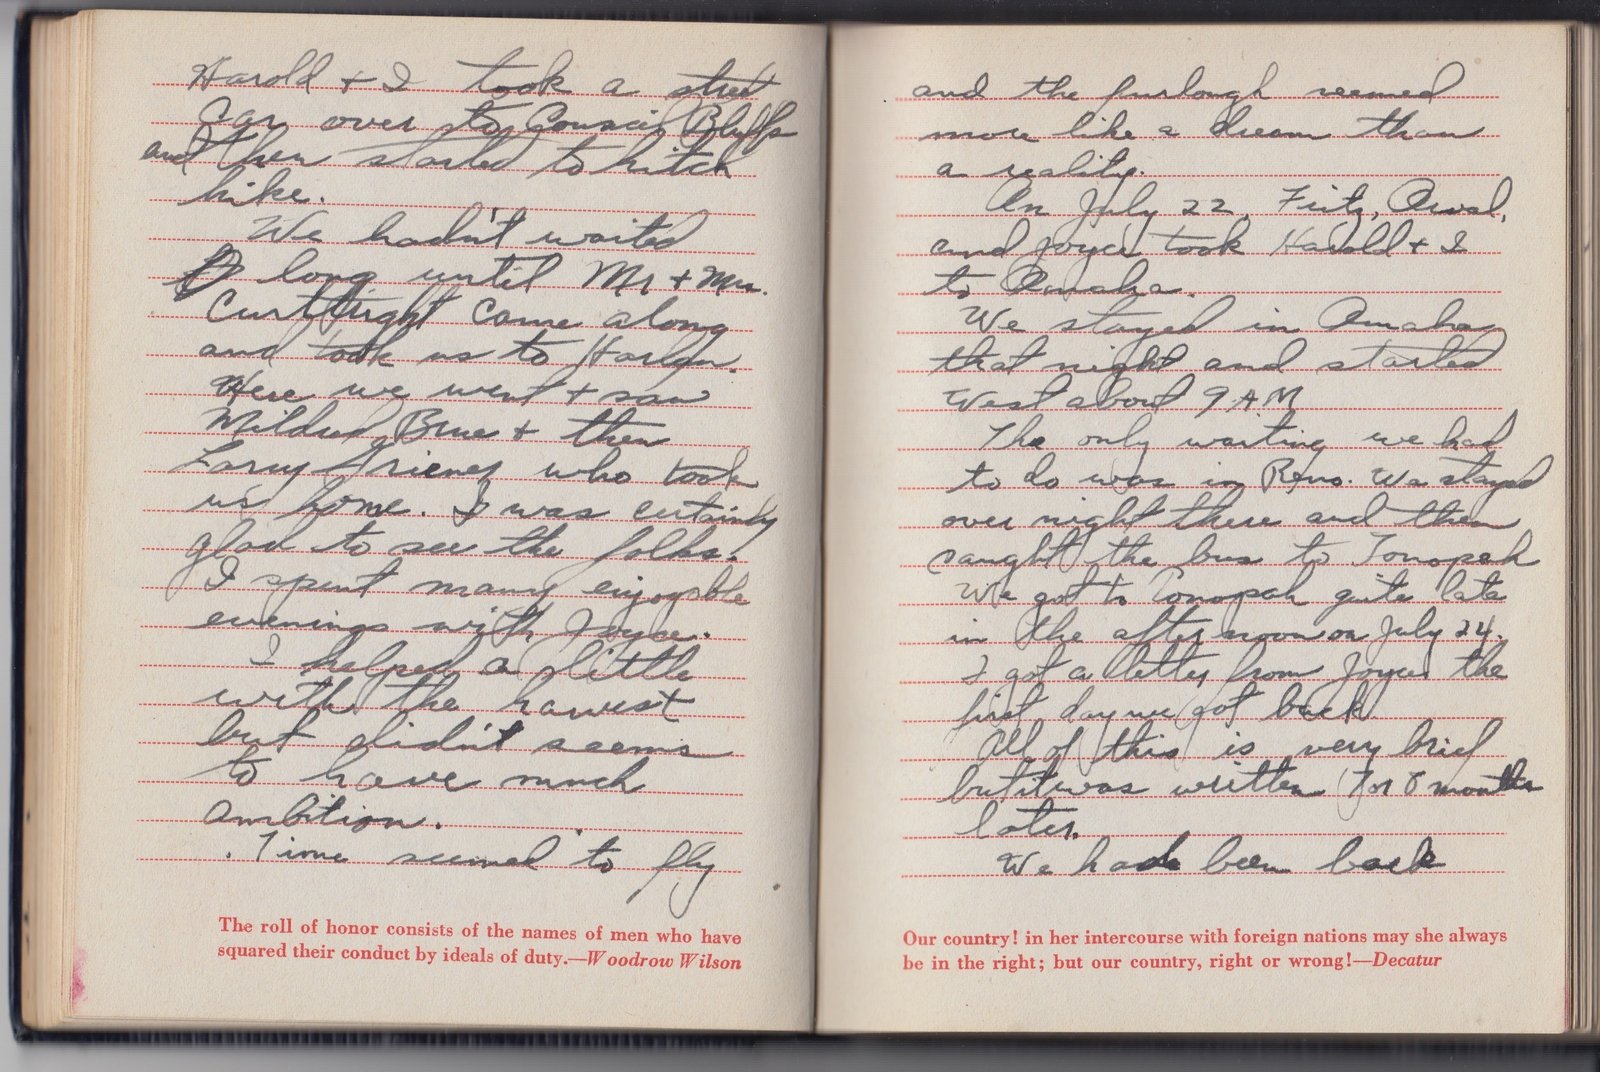 Harold + I took a street
car over to Council Bluffs
and then started to hitch
hike.
We hadn't waited
long until Mr + Mrs.
Curttright came along
and took us to Harlan.
Here we went + saw
Mildred Brue + then
Larry who took
us home. I was certainly
glad to see the folks.
I spent many enjoyable
evenings with Joyce.
I helped a little
with the harvest
but didn't seems
to have much
ambition.
Time seemed to fly
The roll of honor consists of the names of men who have
squared their conduct by ideals of duty.—Woodrow Wilson
and the furlough seemed
more like a dream than
a reality.
On July 22, Fritz, Orval,
and Joyce took Harold + I
to Omaha.
We stayed in Omaha
that night and started
West about 9 A.M
The only waiting we had
to do was in Reno. We stayed
over night there and then
caught the bus to Tonopah
We got to Tonopah quite late
in the afternoon on July 24.
I got a letter from Joyce the
first day we got back.
All of this is very brief
but it was written 7 or 8 months
later.
We hade been back
Our country! in her intercourse with foreign nations may she always
be in the right; but our country, right or wrong!—Decatur